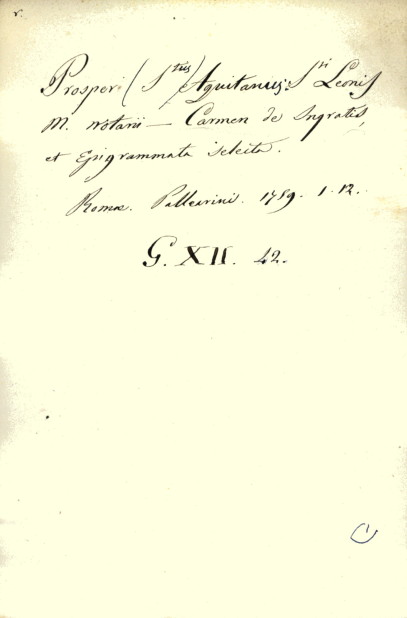 r.
Prosperi (S.tus) Aquitanus: S.ti Leonis
M. notarii — Carmen de Ingratis,
et Epigrammata selecta.
Romæ. Pallearini. 1759. 1. 12.
G. XII. 42.
1